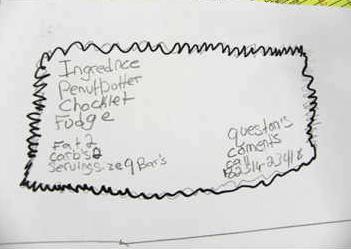 Ingrednce
Penutbotter
Chocklet
Fudge
Fat 2
carb's 8
servings: ze 9 Bar's
queston's
coments
call